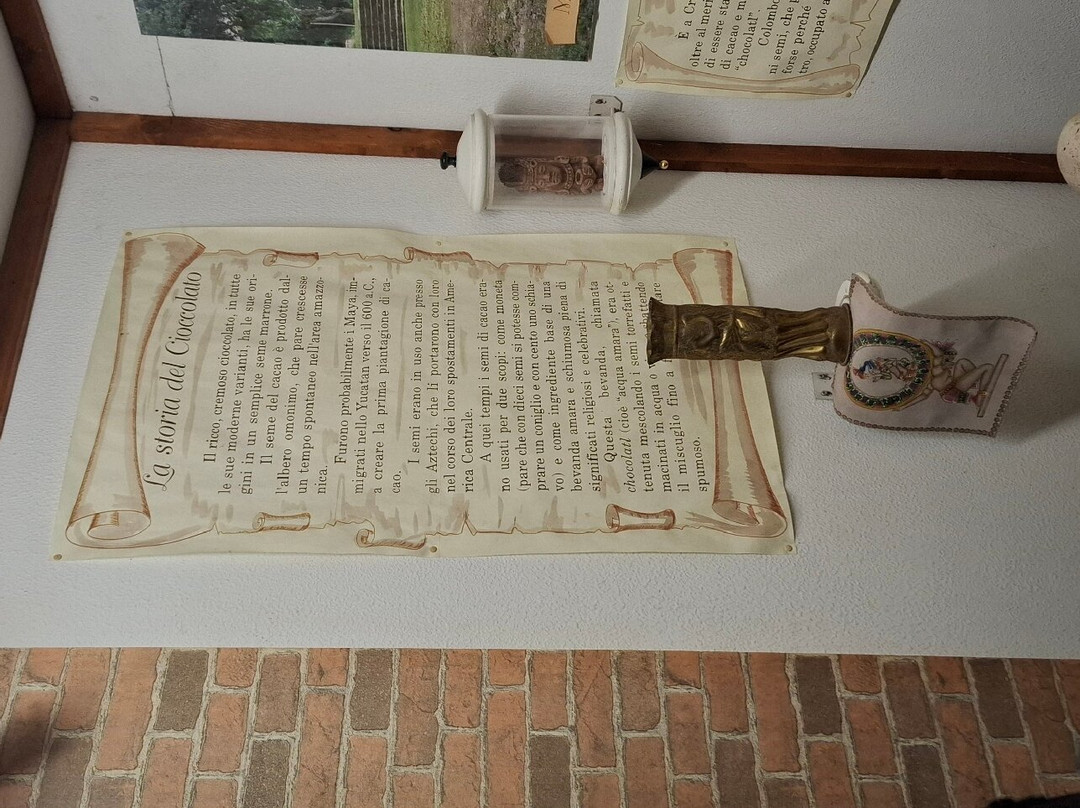 La storia del Cioccolato
Il ricco, cremoso cioccolato, in tutte
le sue moderne varianti, ha le sue ori-
gini in un semplice seme marrone.
Il seme del cacao è prodotto dal-
l'albero omonimo, che pare crescesse
un tempo spontaneo nell'area amazzo-
nica.
Furono probabilmente i Maya, im-
migrati nello Yucatan verso il 600 a.C.,
a creare la prima piantagione di ca-
cao.
I semi erano in uso anche presso
gli Aztechi, che li portarono con loro
nel corso dei loro spostamenti in Ame-
rica Centrale.
A quei tempi i semi di cacao era-
no usati per due scopi: come moneta
(pare che con dieci semi si potesse com-
prare un coniglio e con cento uno schia-
vo) e come ingrediente base di una
bevanda amara e schiumosa piena di
significati religiosi e celebrativi.
Questa bevanda, chiamata
chocolatl (cioè "acqua amara"), era ot-
tenuta mescolando i semi torrefatti e
macinati in acqua
il miscuglio fino a
spumoso.
È a Cr
oltre al meri
di essere sta
di cacao e m
"chocolatl".
Colombo
ni semi, che p
forse perché
tro, occupato a